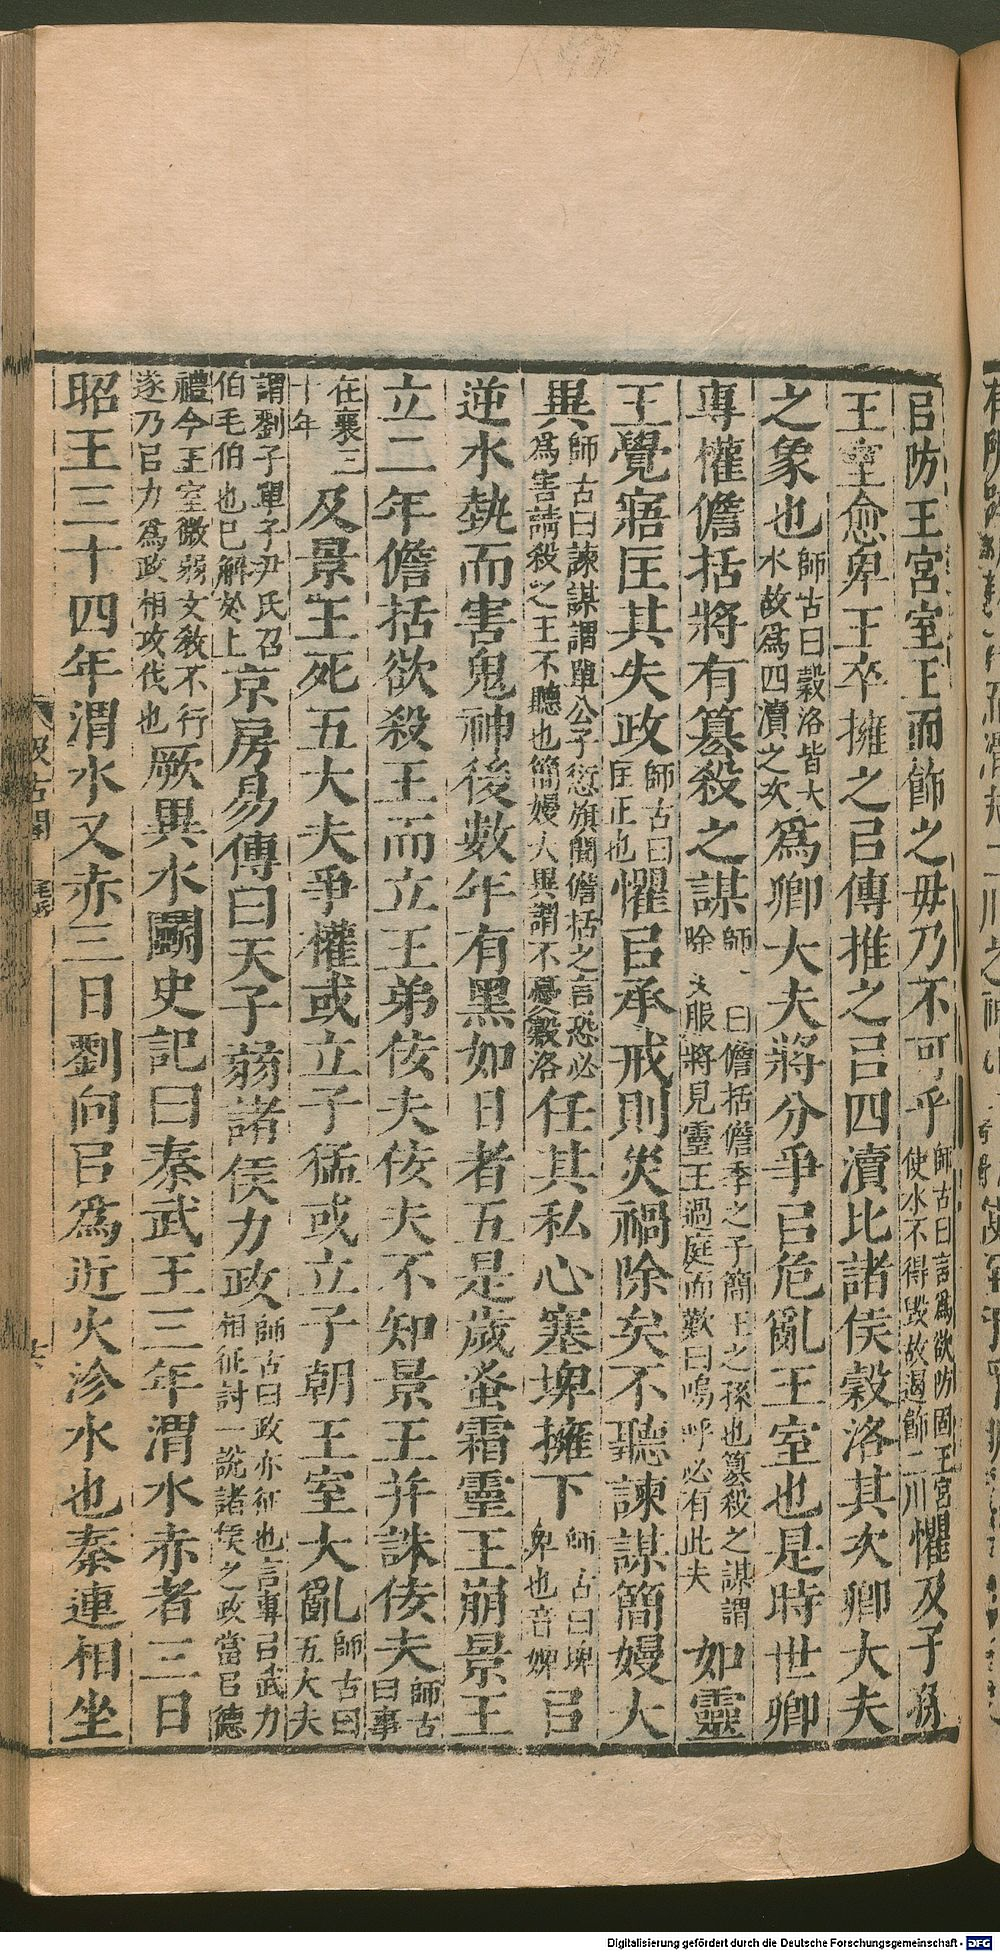 㠯防王宮室王而飾之毋乃不可乎師古曰言爲欲防固王宮使水不得毀故遏飾二川懼及子孫
王室愈卑王卒擁之㠯傳推之㠯四瀆比諸侯穀洛其次卿大夫
之象也師古曰穀洛皆大水故爲四瀆之次爲卿大夫將分爭㠯危亂王室也是時世卿
專權儋括將有簒殺之謀師 曰儋括儋季之子簡王之孫也簒殺之謀謂除 服將見靈王過庭而歎曰嗚呼必有此夫如靈
王覺寤匡其失政師古曰匡正也懼㠯承戒則災禍除矣不聽諫謀簡嫚大
異師古曰諫謀謂單公子愆旗聞儋括之言恐必爲害請殺之王不聽也簡嫚大異謂不憂穀洛任其私心塞埤擁下師古曰埤卑也音婢㠯
逆水埶而害鬼神後數年有黑如日者五是歲蚤霜靈王崩景王
立二年儋括欲殺王而立王弟佞夫佞夫不知景王并誅佞夫師古曰事
在襄三十年及景王死五大夫爭權或立子猛或立子朝王室大亂師古曰五大夫
謂劉子單子尹氏召伯毛伯也已解於上京房易傳曰天子弱諸侯力政師古曰政亦征也言專㠯武力相征討一說諸侯之政當㠯德
禮今王室微弱文敎不行遂乃㠯力爲政相攻伐也厥異水鬭史記曰秦武王三年渭水赤者三日
昭王三十四年渭水又赤三日劉向㠯爲近火沴水也秦連相坐
汲古閣
毛氏
Digitalisierung gefördert durch die Deutsche Forschungsgemeinschaft - DFG